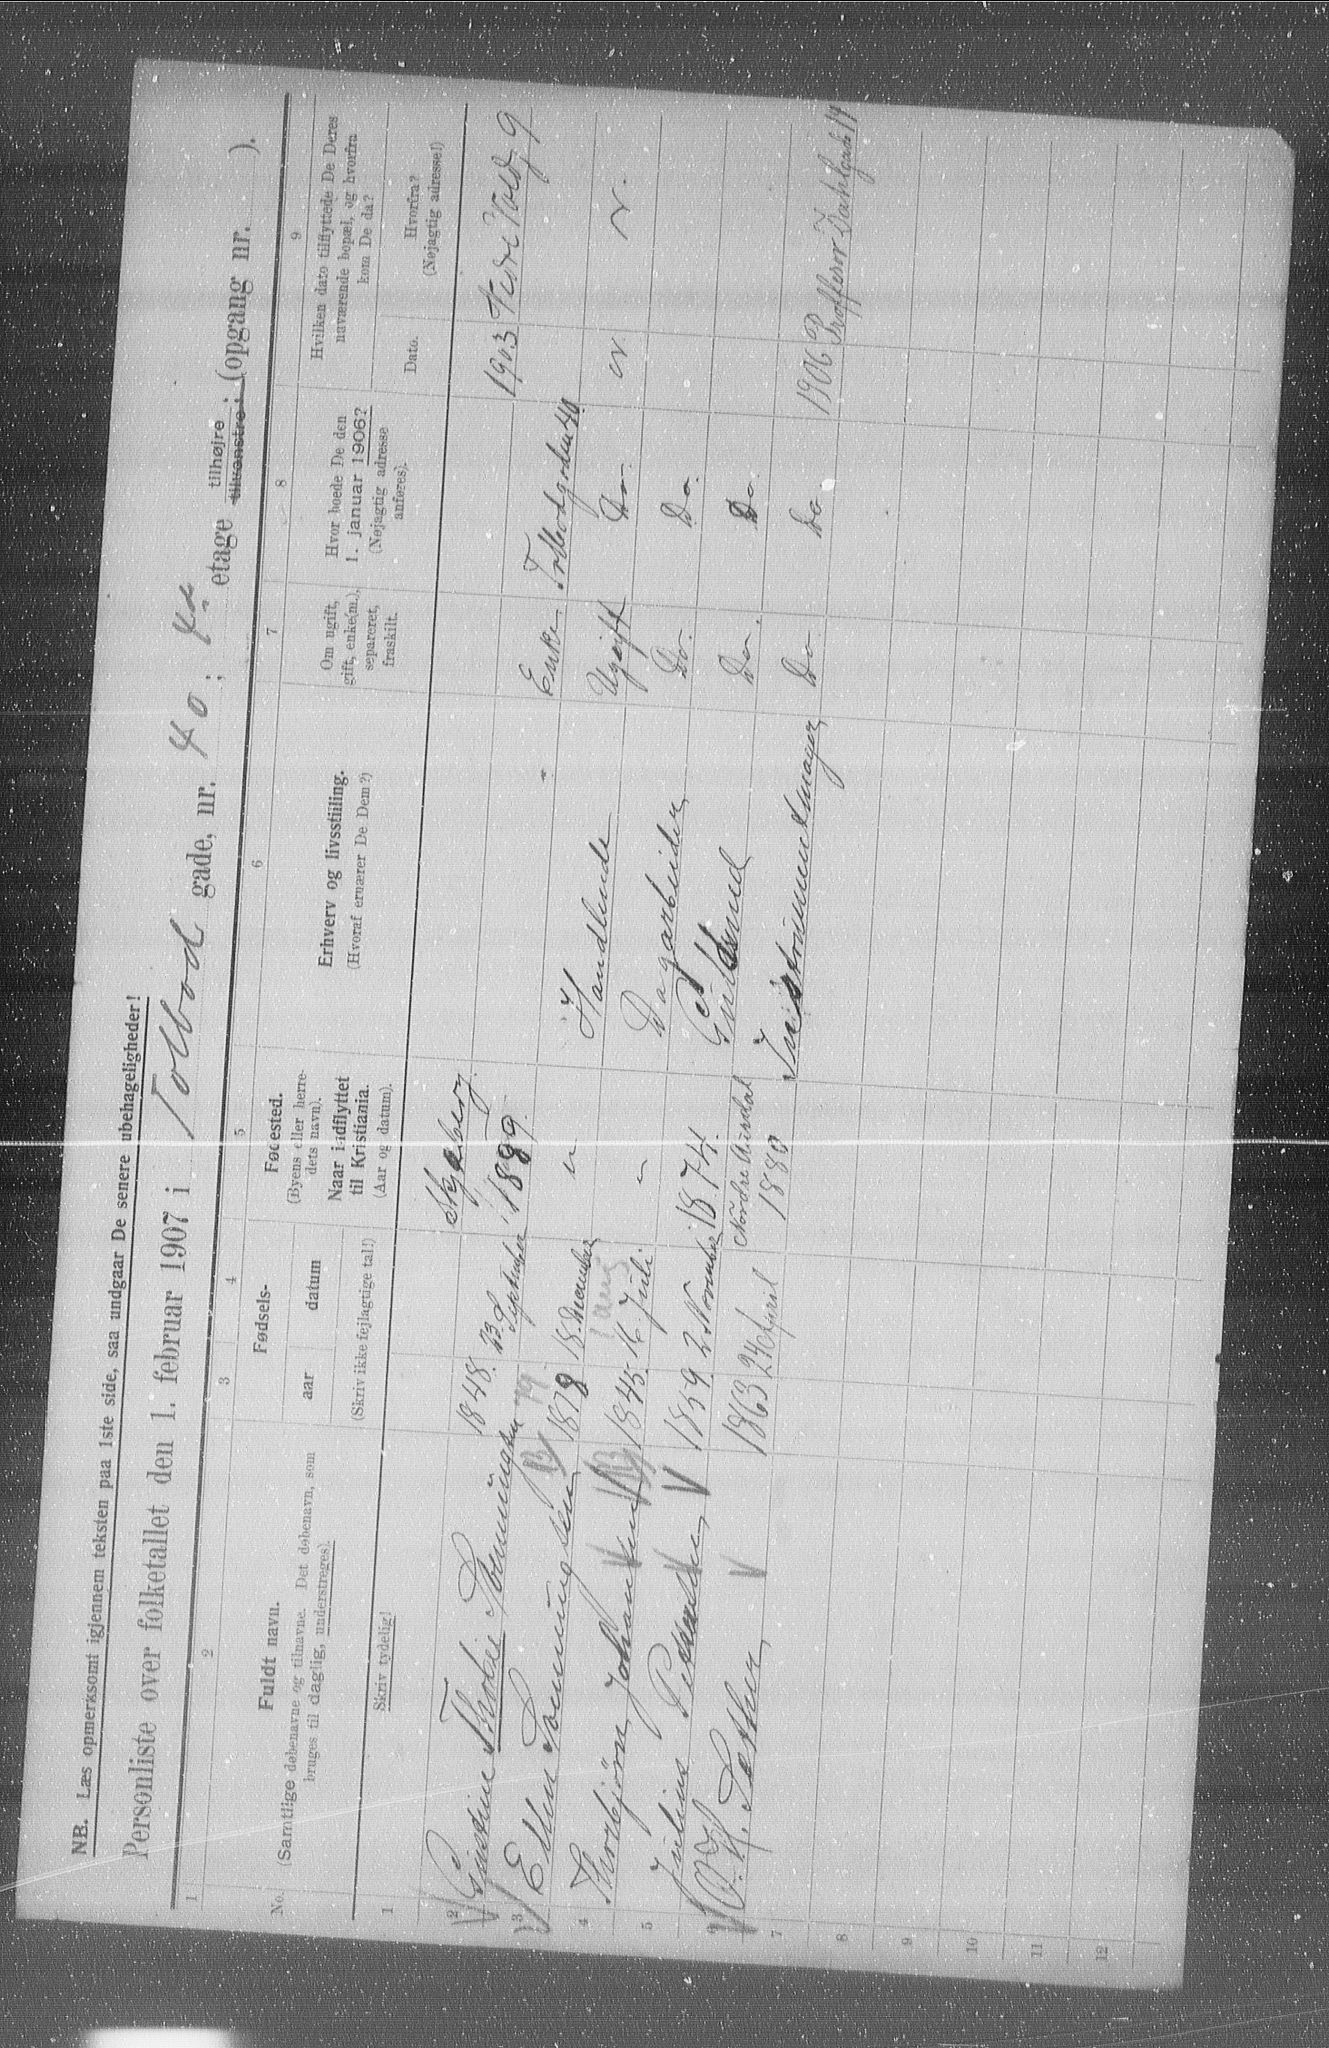 NB. Læs opmerksomt igjennem teksten paa 1ste side, saa undgaar De senere ubehageligheder!
Personliste over folketallet den 1. februar 1907 i Tolbod gade, nr. 40; 4. etage tilhøjre; tilvenstre; (opgang nr. ).
1 2 3 4 5 6 7 8 9
No.
Fuldt navn.
(Samtlige døbenavne og tilnavne. Det døbenavn, som
bruges til daglig, understreges).
Skriv tydelig!
Fødsels-
aar datum
(Skriv ikke fejlagtige tal!)
Fødested.
(Byens eller herre-
dets navn).
Naar indflyttet
til Kristiania.
(Aar og datum).
Erhverv og livsstilling.
(Hvoraf ernærer De Dem?)
Om ugift,
gift, enke(m.),
separeret,
fraskilt.
Hvor boede De den
1. januar 1906?
(Nøjagtig adresse
anføres).
Hvilken dato tilflyttede De Deres
naværende bopæl, og hvorfra
kom De da?
Dato.
Hvorfra?
(Nøjagtig adresse!)
1
2 Thoda 1848. 23. September Skjeberg 1889. Enke Tolbodgaden 40. 1903 9
3 Ellen 1878 79 18. December " Handlende Ugift Do. " "
4 Thorbjörn Johansen 1845. 16. Juli. " Dagarbeider Do. Do.
5 Julius 1859 2 November 1874. Guldsmed Do. Do.
6 Sæther 1863 24 April Nordre Aurdal 1880 Instrumentmager Do. Do. 1906 Proffesor Dahlsgade 14
7
8
9
10
11
12